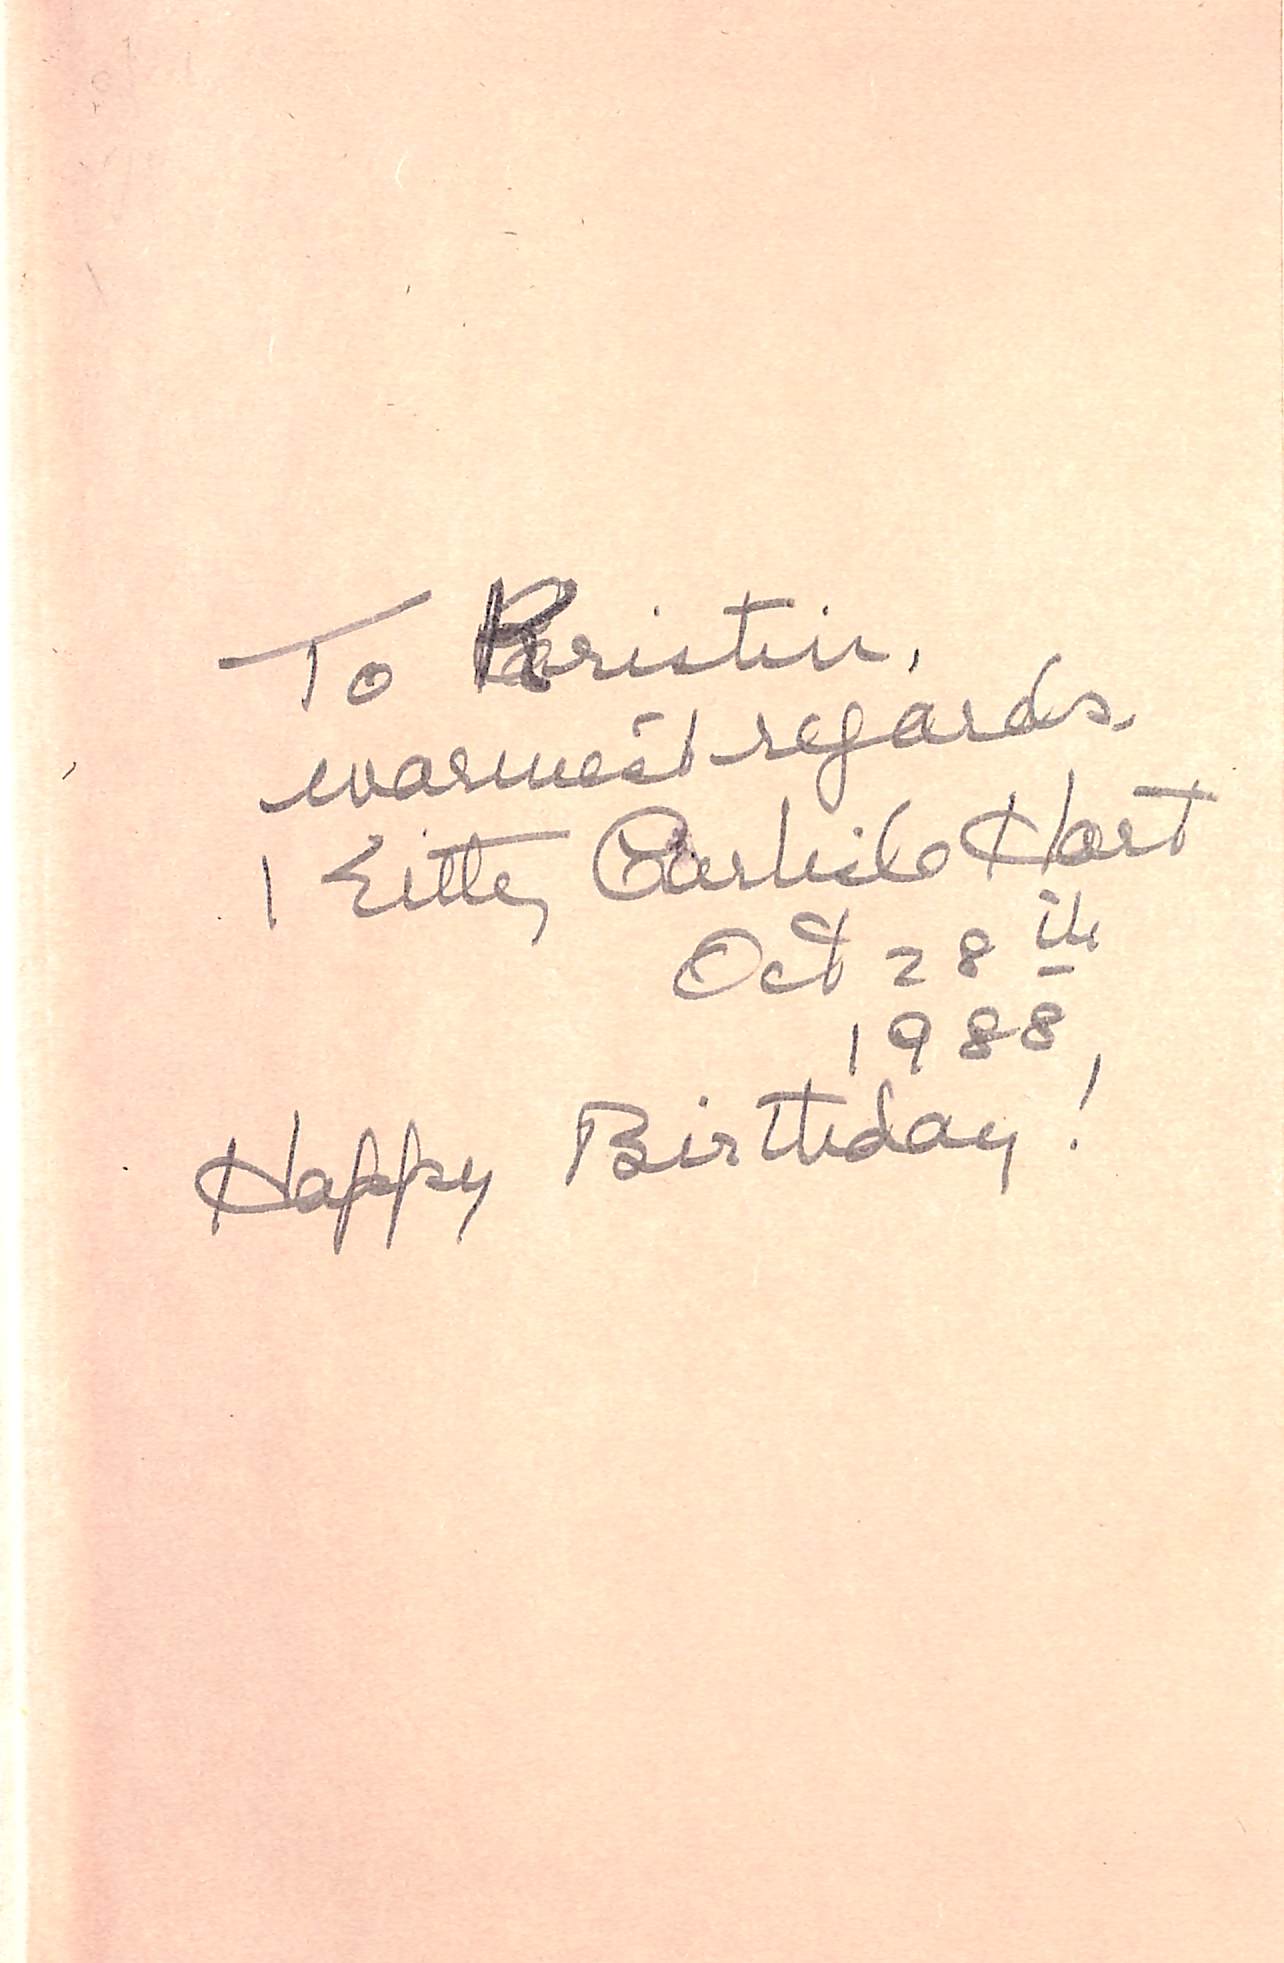 To Kristin,
warmest regards
Kitty Carlisle Hart
Oct 28th
1988
Happy Birthday!